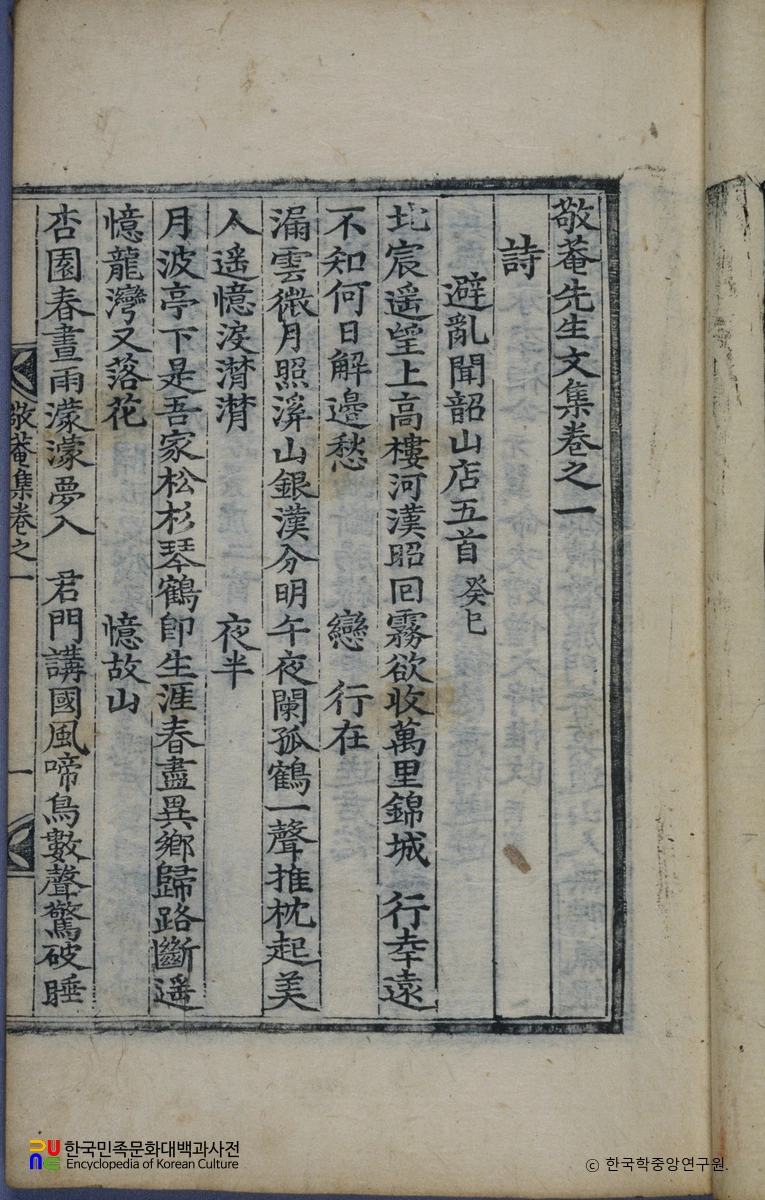 敬菴先生文集卷之一
詩
避亂聞韶山店五首 癸巳
北宸遥望上高樓河漢昭回霧欲收萬里錦城 行幸遠
不知何日解邉愁 戀 行在
漏雲微月照溪山銀漢分明午夜闌孤鶴一聲推枕起美
人遥憶淚潸潸 夜半
月波亭下是吾家松杉琴鶴卽生涯春盡異鄉歸路斷遥
憶龍灣又落花 憶故山
杏園春晝雨濛濛夢入 君門講國風啼鳥數聲驚破睡
敬菴集卷之一 一
한국민족문화대백과사전
Encyclopedia of Korean Culture
© 한국학중앙연구원.